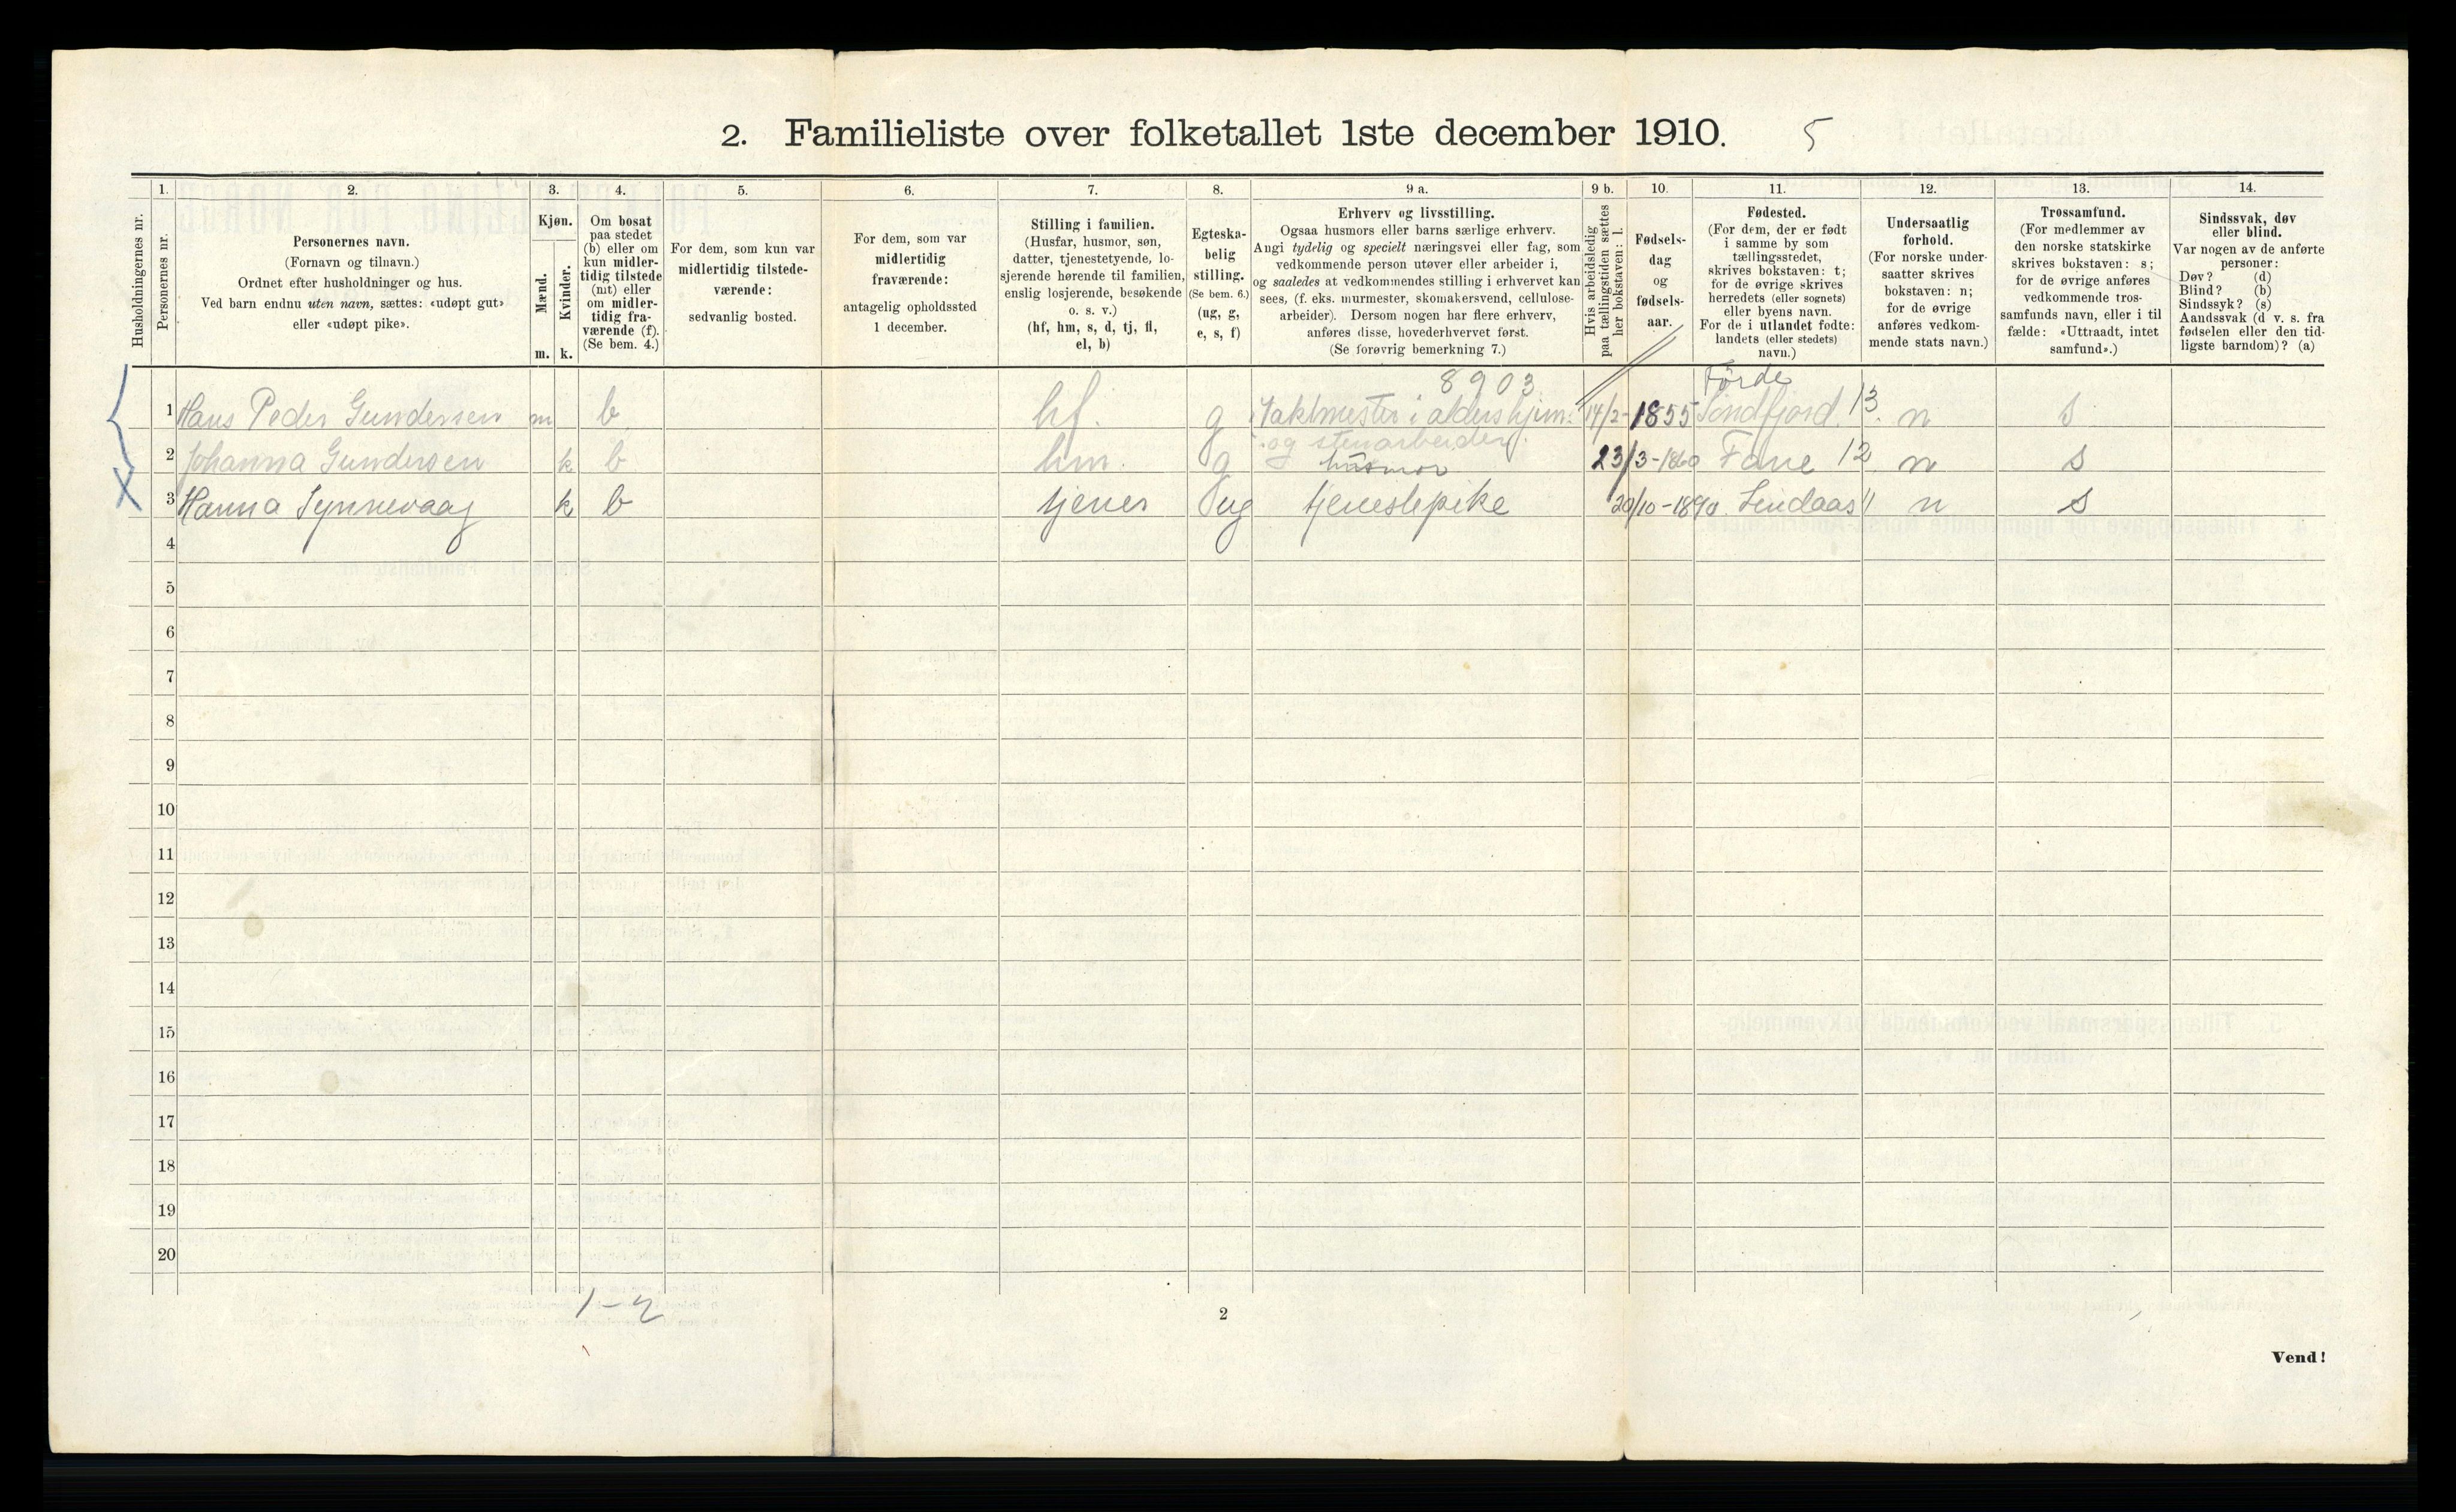 2. Familieliste over folketallet 1ste december 1910. 5
Husholdningernes nr.
1.
Personernes nr.
2.
Personernes navn.
(Fornavn og tilnavn.)
Ordnet efter husholdninger og hus.
Ved barn endnu uten navn, sættes: «udøpt gut»
eller «udøpt pike».
3.
Kjøn.
Mænd.
Kvinder.
m. k.
4.
Om bosat
paa stedet
(b) eller om
kun midler-
tidig tilstede
(mt) eller
om midler-
tidig fra-
værende (f).
(Se bem. 4.)
5.
For dem, som kun var
midlertidig tilstede-
værende:
sedvanlig bosted.
6.
For dem, som var
midlertidig
fraværende:
antagelig opholdssted
1 december.
7.
Stilling i familien.
(Husfar, husmor, søn,
datter, tjenestetyende, lo-
sjerende hørende til familien,
enslig losjerende, besøkende
o. s. v.)
(hf, hm, s, d, tj, fl,
el, b)
8.
Egteska-
belig
stilling.
(Se bem. 6.)
(ug, g,
e, s, f)
9 a.
Erhverv og livsstilling.
Ogsaa husmors eller barns særlige erhverv.
Angi tydelig og specielt næringsvei eller fag, som
vedkommende person utøver eller arbeider i,
og saaledes at vedkommendes stilling i erhvervet kan
sees, (f. eks. murmester, skomakersvend, cellulose-
arbeider). Dersom nogen har flere erhverv,
anføres disse, hovederhvervet først.
(Se forøvrig bemerkning 7.)
9 b.
Hvis arbeidsledig
paa tællingstiden sættes
her bokstaven: l.
10.
Fødsels-
dag
og
fødsels-
aar.
11.
Fødested.
(For dem, der er født
i samme by som
tællingsstedet,
skrives bokstaven: t;
for de øvrige skrives
herredets (eller sognets)
eller byens navn.
For de i utlandet fødte:
landets (eller stedets)
navn.)
12.
Undersaatlig
forhold.
(For norske under-
saatter skrives
bokstaven: n;
for de øvrige
anføres vedkom-
mende stats navn.)
13.
Trossamfund.
(For medlemmer av
den norske statskirke
skrives bokstaven: s;
for de øvrige anføres
vedkommende tros-
samfunds navn, eller i til
fælde: «Uttraadt, intet
samfund».)
14.
Sindssvak, døv
eller blind.
Var nogen av de anførte
personer:
Døv? (d)
Blind? (b)
Sindssyk? (s)
Aandssvak (d v. s. fra
fødselen eller den tid-
ligste barndom)? (a)
8903 Førde
1 Hans Peder Gundersen m b hf. g Vaktmester i aldershjem. 14/2-1855 Søndfjord. 13. n s
og stenarbeider.
2 Johanna Gundersen k b hm. g husmor 23/3-1860 Fane 12 n s
3 Hanna Synnevaag k b tjener ug tjenestepike 20/10-1890. Lindaas 11 n s
4
5
6
7
8
9
10
11
12
13
14
15
16
17
18
19
20
1-2
2
Vend!